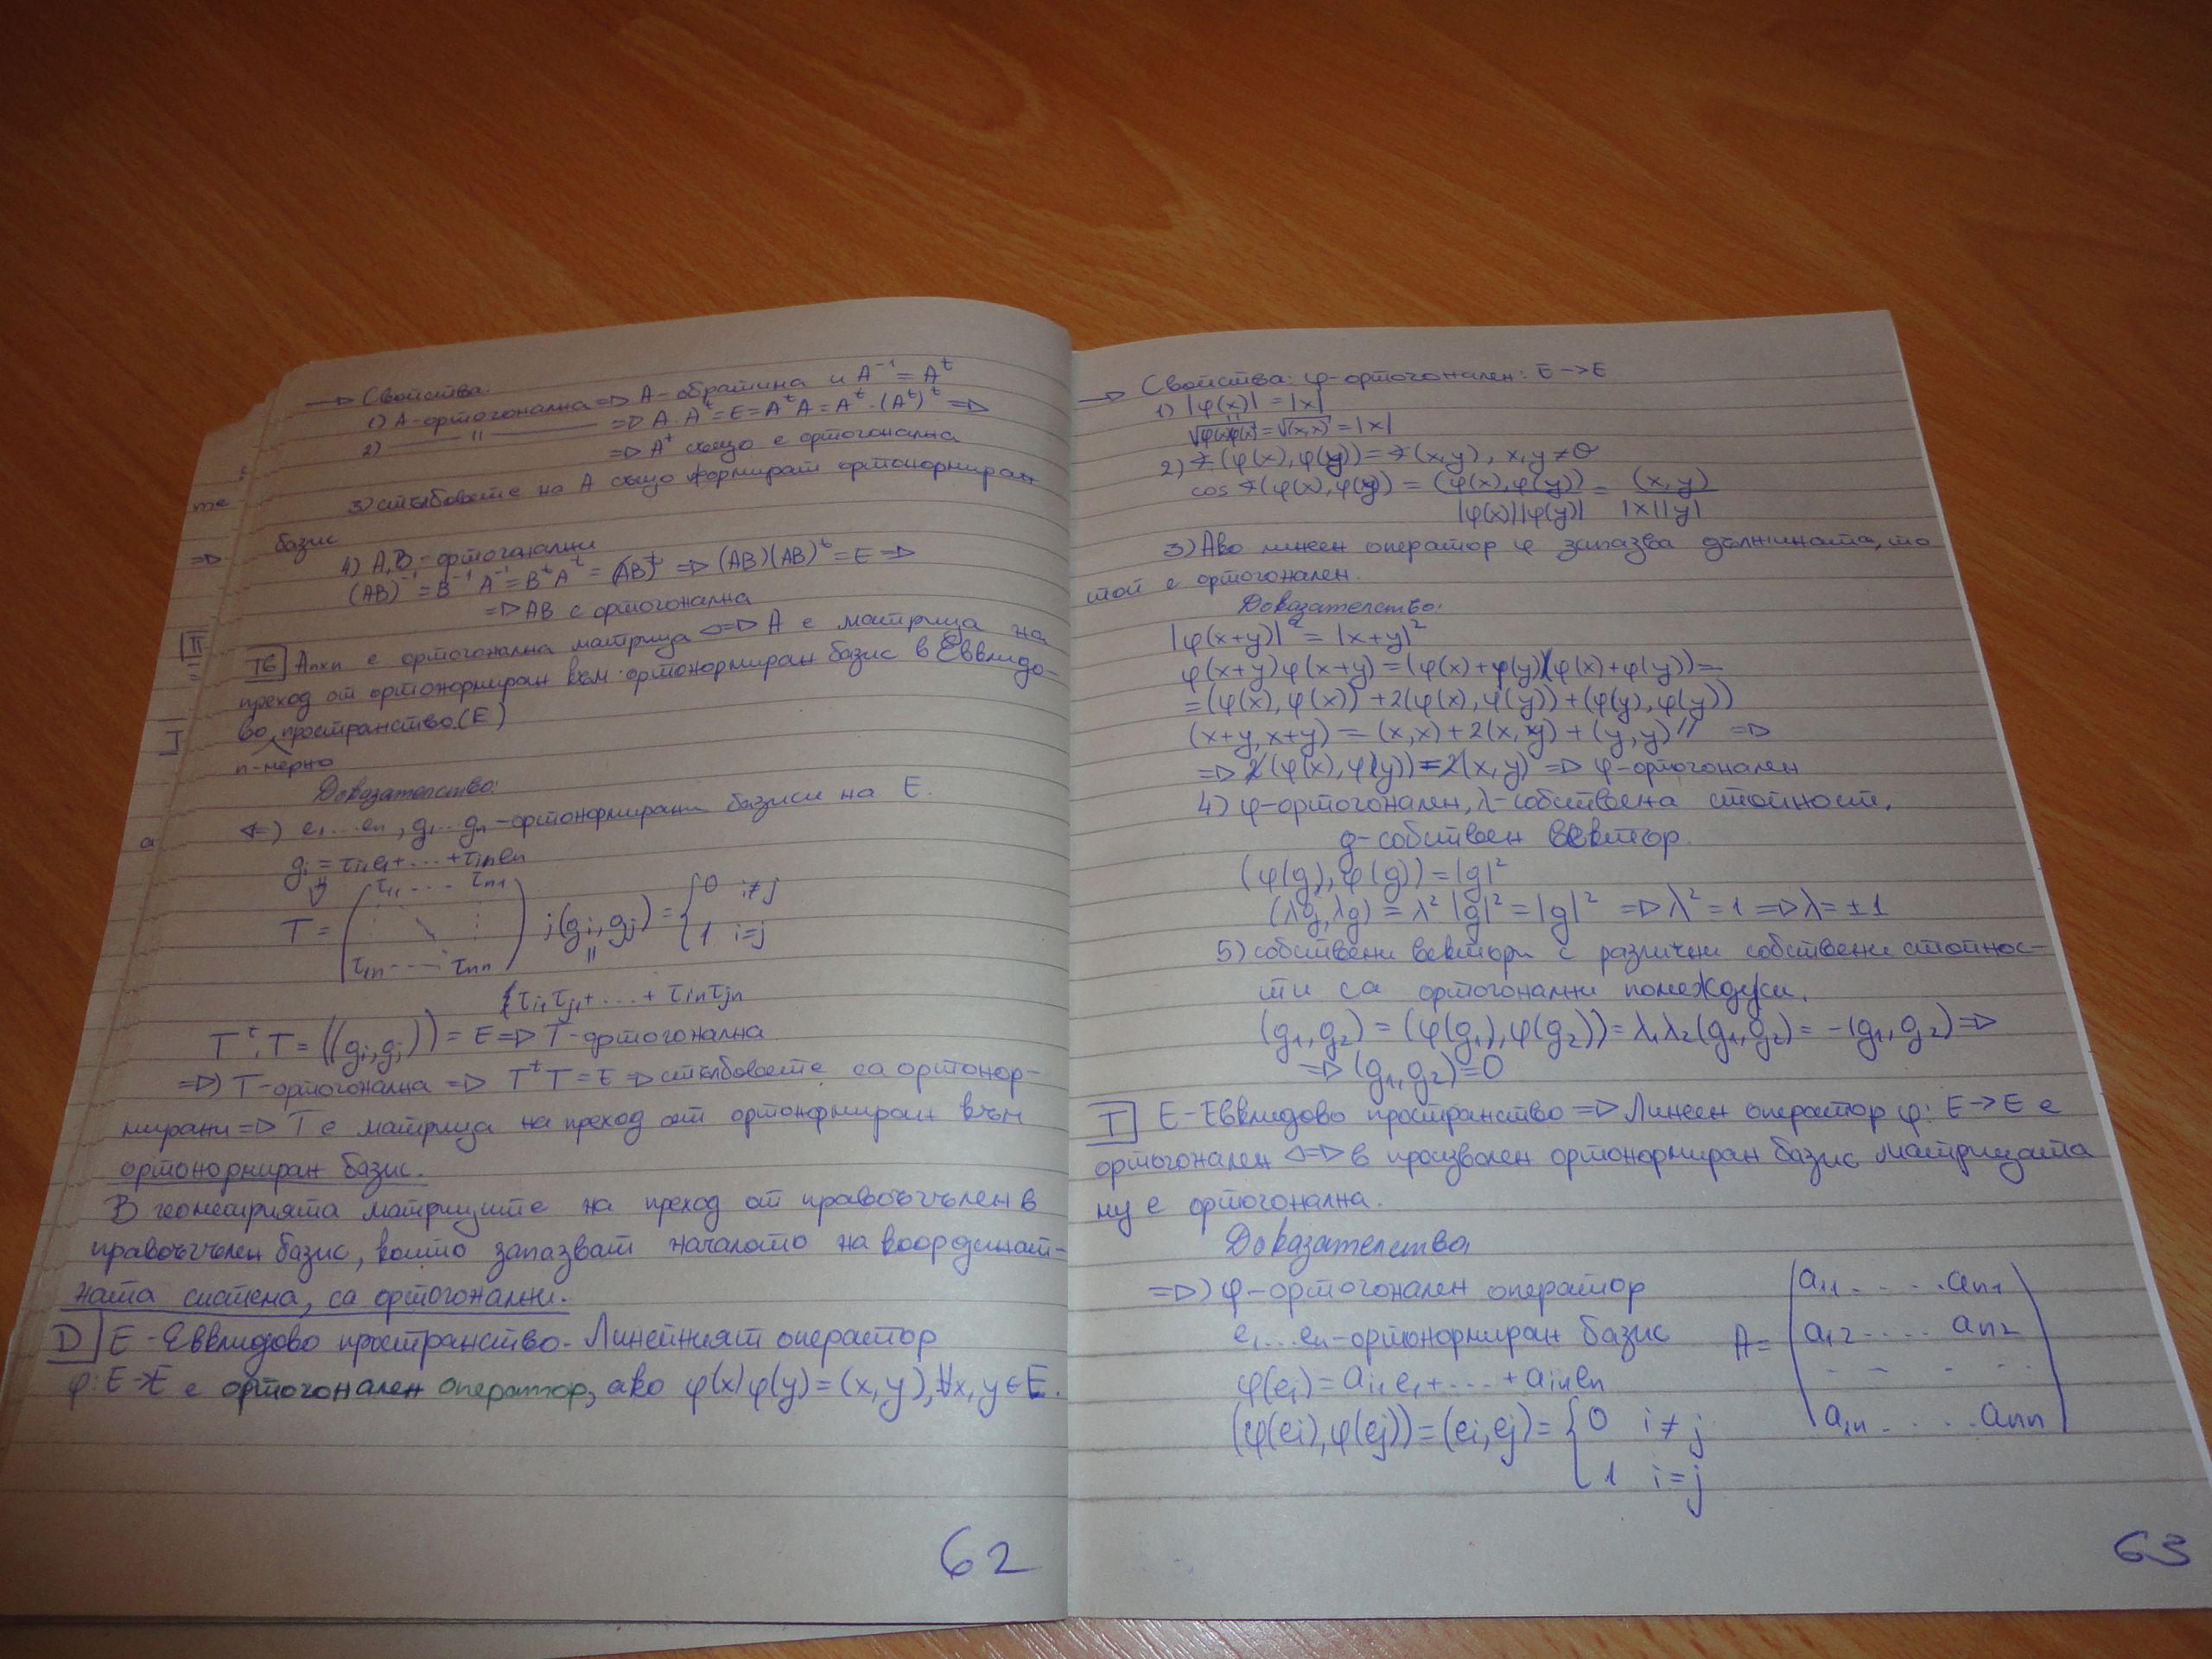 → Свойства:
1) A-ортогонална => A-обратима и A⁻¹ = Aᵗ
2) —— '' —— => A.Aᵗ = E = AᵗA = Aᵗ.(Aᵗ)ᵗ =>
=> Aᵗ също е ортогонална
3) стълбовете на A също формират ортонормиран
базис
4) A,B - ортогонални
(AB)⁻¹ = B⁻¹A⁻¹ = BᵗAᵗ = (AB)ᵗ => (AB)(AB)ᵗ = E =>
=> AB е ортогонална
Тв Anxn е ортогонална матрица <=> A е матрица на
преход от ортонормиран към ортонормиран базис в Евклидо-
во пространство (E)
n-мерно
Доказателство:
<=) e₁...eₙ, g₁...gₙ - ортонормирани базиси на E.
gᵢ = τᵢ₁e₁+...+τᵢₙeₙ
T = (τ₁₁ ... τₙ₁
τ₁ₙ ... τₙₙ) ; (gᵢ, gⱼ) = {0 i≠j
1 i=j
''
τᵢ₁τⱼ₁+...+τᵢₙτⱼₙ
Tᵗ.T = ((gᵢ,gⱼ)) = E => T-ортогонална
=>) T-ортогонална => TᵗT = E => стълбовете са ортонор-
мирани => T е матрица на преход от ортонормиран към
ортонормиран базис.
В геометрията матриците на преход от правоъгълен в
правоъгълен базис, които запазват началото на координат-
ната система, са ортогонални.
D E - Евклидово пространство. Линейният оператор
φ: E→E е ортогонален оператор, ако φ(x)φ(y) = (x,y), ∀x,y ∈ E.
62
→ Свойства: φ-ортогонален: E→E
1) |φ(x)| = |x|
''
√φ(x)φ(x) = √(x,x) = |x|
2) ∢(φ(x), φ(y)) = ∢(x,y), x,y ≠ θ
cos ∢(φ(x), φ(y)) = (φ(x), φ(y)) / |φ(x)||φ(y)| = (x,y) / |x||y|
3) Ако линеен оператор φ запазва дължината, то
той е ортогонален.
Доказателство:
|φ(x+y)|² = |x+y|²
φ(x+y)φ(x+y) = (φ(x)+φ(y))(φ(x)+φ(y)) =
= (φ(x), φ(x)) + 2(φ(x), φ(y)) + (φ(y), φ(y))
(x+y, x+y) = (x,x) + 2(x,y) + (y,y) '' =>
=> 2(φ(x), φ(y)) = 2(x,y) => φ-ортогонален
4) φ-ортогонален, λ-собствена стойност,
g-собствен вектор.
(φ(g), φ(g)) = |g|²
(λg, λg) = λ²|g|² = |g|² => λ² = 1 => λ = ±1
5) собствени вектори с различни собствени стойнос-
ти са ортогонални помежду си.
(g₁, g₂) = (φ(g₁), φ(g₂)) = λ₁λ₂(g₁, g₂) = -(g₁, g₂) =>
=> (g₁, g₂) = 0
T E - Евклидово пространство => Линеен оператор φ: E→E е
ортогонален <=> в произволен ортонормиран базис матрицата
му е ортогонална.
Доказателство
=>) φ-ортогонален оператор
e₁...eₙ-ортонормиран базис
φ(eᵢ) = aᵢ₁e₁+...+aᵢₙeₙ
A = (a₁₁ .... aₙ₁
a₁₂ .... aₙ₂
- - - - -
a₁ₙ .... aₙₙ)
(φ(eᵢ), φ(eⱼ)) = (eᵢ, eⱼ) = {0 i≠j
1 i=j
63